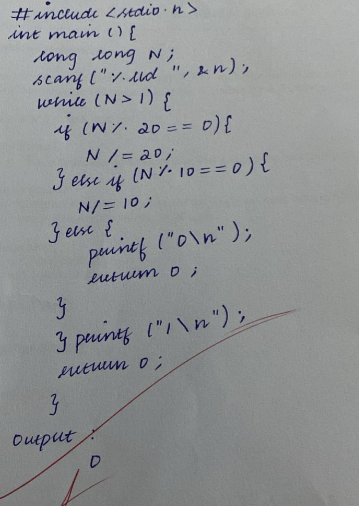 #include <stdio.h>
int main () {
long long N;
scanf ("%lld ", &n);
while (N>1) {
if (N % 20 == 0){
N /= 20;
} else if (N % 10 == 0) {
N/= 10;
} else {
printf ("0\n");
return 0;
}
} printf ("1\n");
return 0;
}
Output :
0